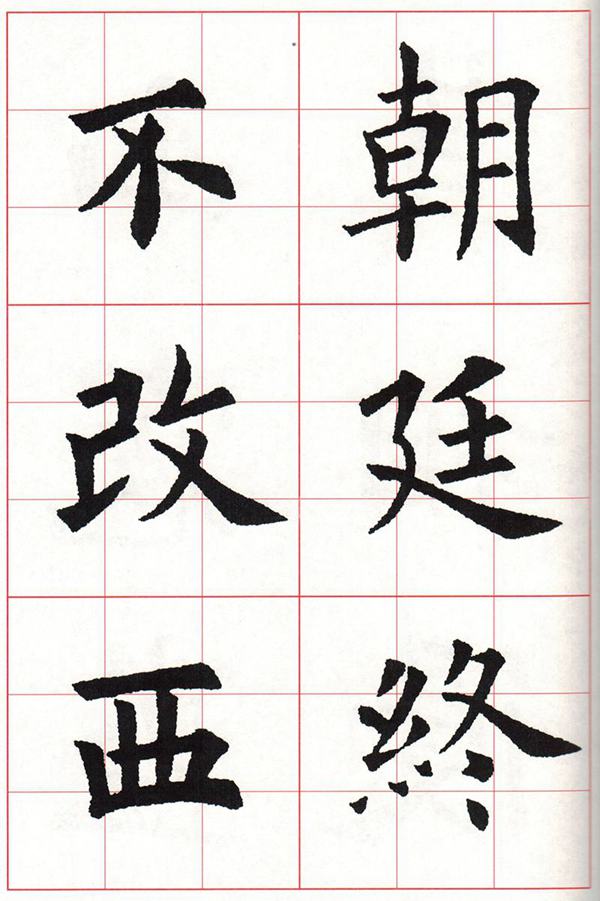 朝廷終
不改西